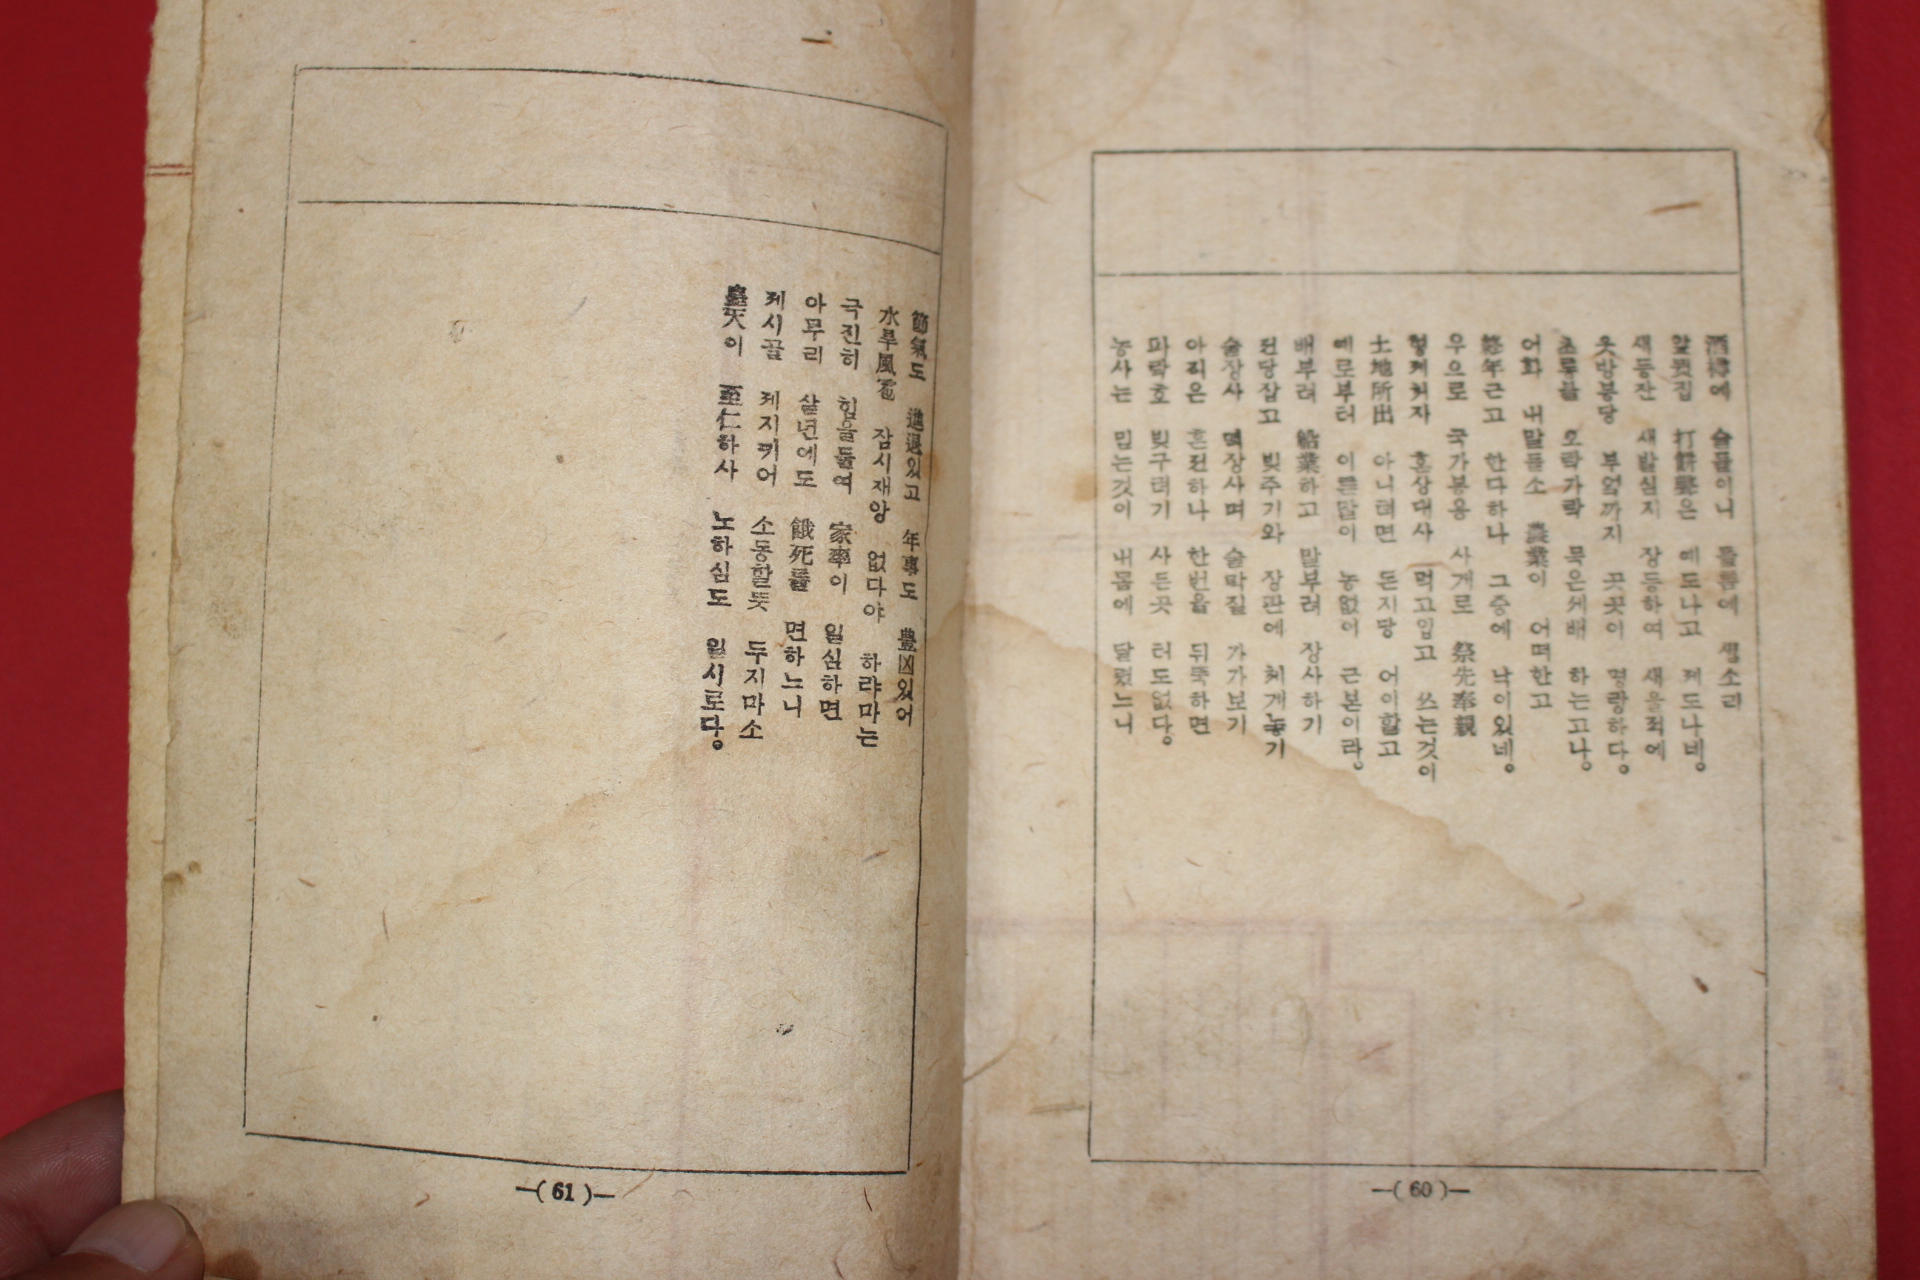 酒樽에 술들이니 돌틈에 샘소리
앞뒷집 打餠聲은 예도나고 제도나네。
새등잔 새발심지 장등하여 새울적에
웃방봉당 부엌까지 곳곳이 명랑하다。
오락가락 묵은세배 하는고나。
어화 내말듣소 農業이 어떠한고
終年근고 한다하나 그중에 낙이있네。
우으로 국가봉용 사개로 祭先奉親
형제처자 혼상대사 먹고입고 쓰는것이
土地所出 아니려면 돈지당 어이할고
예로부터 이른말이 농없이 근본이라。
배부려 船業하고 말부려 장사하기
전당잡고 빚주기와 장판에 체계놓기
술장사 떡장사며 술막질 가가보기
아직은 흔전하나 한번을 뒤뚝하면
파락호 빚구러기 사든곳 터도없다。
농사는 믿는것이 내몸에 달렸느니
—( 60 )—
節氣도 進退있고 年事도 豊凶있어
水旱風雹 잠시재앙 없다야 하랴마는
극진히 힘을들여 家率이 일심하면
아무리 살년에도 餓死를 면하느니
제시골 제지키어 소동할뜻 두지마소
皇天이 至仁하사 노하심도 일시로다。
—( 61 )—